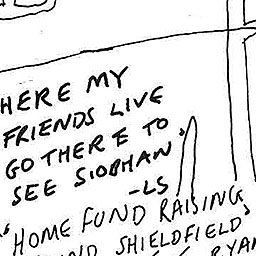 HERE MY
FRIENDS LIVE
GO THERE TO
SEE SIOBHAN.
-LS
"HOME FUND RAISING
SHIELDFIELD"
RYAN